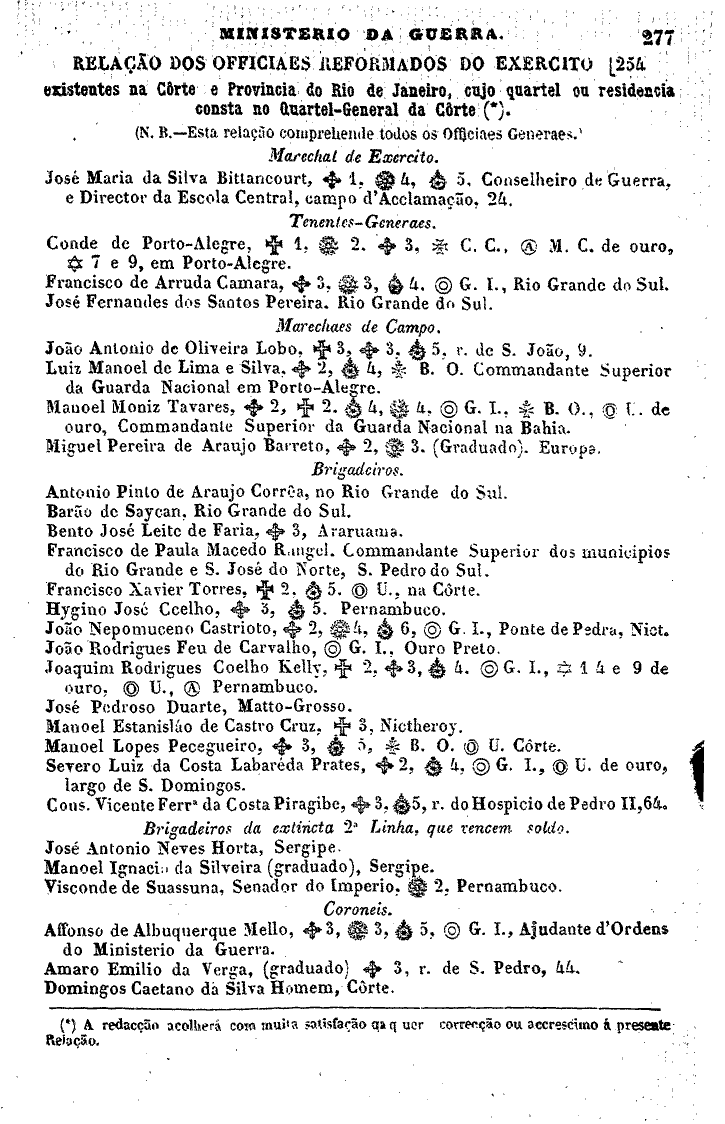 MINISTERIO DA GUERRA. 277
RELAÇÃO DOS OFFICIAES REFORMADOS DO EXERCITO [254
existentes na Côrte e Provincia do Rio de Janeiro, cujo quartel ou residencia
consta no Quartel-General da Côrte (*).
(N. B.—Esta relação comprehende todos os Officiaes Generaes.)
Marechal de Exercito.
José Maria da Silva Bittancourt, ✤ 1, ❁ 4, ♁ 5, Conselheiro de Guerra,
e Director da Escola Central, campo d'Acclamação, 24.
Tenentes-Generaes.
Conde de Porto-Alegre, ✠ 1, ❁ 2. ✤ 3, ⚜ C. C., Ⓐ M. C. de ouro,
✡ 7 e 9, em Porto-Alegre.
Francisco de Arruda Camara, ✤ 3, ❁ 3, ♁ 4. ◎ G. I., Rio Grande do Sul.
José Fernandes dos Santos Pereira. Rio Grande do Sul.
Marechaes de Campo.
João Antonio de Oliveira Lobo, ✠ 3, ✤ 3, ♁ 5, r. de S. João, 9.
Luiz Manoel de Lima e Silva, ✤ 2, ♁ 4, ⚜ B. O. Commandante Superior
da Guarda Nacional em Porto-Alegre.
Manoel Moniz Tavares, ✤ 2, ✠ 2. ♁ 4, ❁ 4, ◎ G. I., ⚜ B. O., ◎ U. de
ouro, Commandante Superior da Guarda Nacional na Bahia.
Miguel Pereira de Araujo Barreto, ✤ 2, ❁ 3. (Graduado). Europa.
Brigadeiros.
Antonio Pinto de Araujo Corrêa, no Rio Grande do Sul.
Barão de Saycan, Rio Grande do Sul.
Bento José Leite de Faria, ✤ 3, Araruama.
Francisco de Paula Macedo Rangel. Commandante Superior dos municipios
do Rio Grande e S. José do Norte, S. Pedro do Sul.
Francisco Xavier Torres, ✠ 2, ♁ 5. ◎ U., na Côrte.
Hygino José Coelho, ✤ 3, ♁ 5. Pernambuco.
João Nepomuceno Castrioto, ✤ 2, ❁ 4, ♁ 6, ◎ G. I., Ponte de Pedra, Nict.
João Rodrigues Feu de Carvalho, ◎ G. I., Ouro Preto.
Joaquim Rodrigues Coelho Kelly, ✠ 2, ✤ 3, ♁ 4. ◎ G. I., ✡ 1 4 e 9 de
ouro, ◎ U., Ⓐ Pernambuco.
José Pedroso Duarte, Matto-Grosso.
Manoel Estanisláo de Castro Cruz, ✠ 3, Nictheroy.
Manoel Lopes Pecegueiro, ✤ 3, ♁ 5, ⚜ B. O. ◎ U. Côrte.
Severo Luiz da Costa Labaréda Prates, ✤ 2, ♁ 4, ◎ G. I., ◎ U. de ouro,
largo de S. Domingos.
Cons. Vicente Ferrª da Costa Piragibe, ✤ 3, ♁ 5, r. do Hospicio de Pedro II, 64.
Brigadeiros da extincta 2ª Linha, que vencem soldo.
José Antonio Neves Horta, Sergipe.
Manoel Ignacio da Silveira (graduado), Sergipe.
Visconde de Suassuna, Senador do Imperio, ❁ 2, Pernambuco.
Coroneis.
Affonso de Albuquerque Mello, ✤ 3, ❁ 3, ♁ 5, ◎ G. I., Ajudante d'Ordens
do Ministerio da Guerra.
Amaro Emilio da Verga, (graduado) ✤ 3, r. de S. Pedro, 44.
Domingos Caetano da Silva Homem, Côrte.
(*) A redacção acolherá com muita satisfação correcção ou accrescimo á presente
Relação.